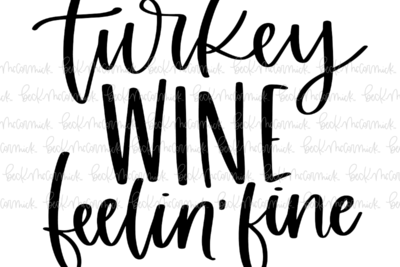 turkey
WINE
feelin' fine